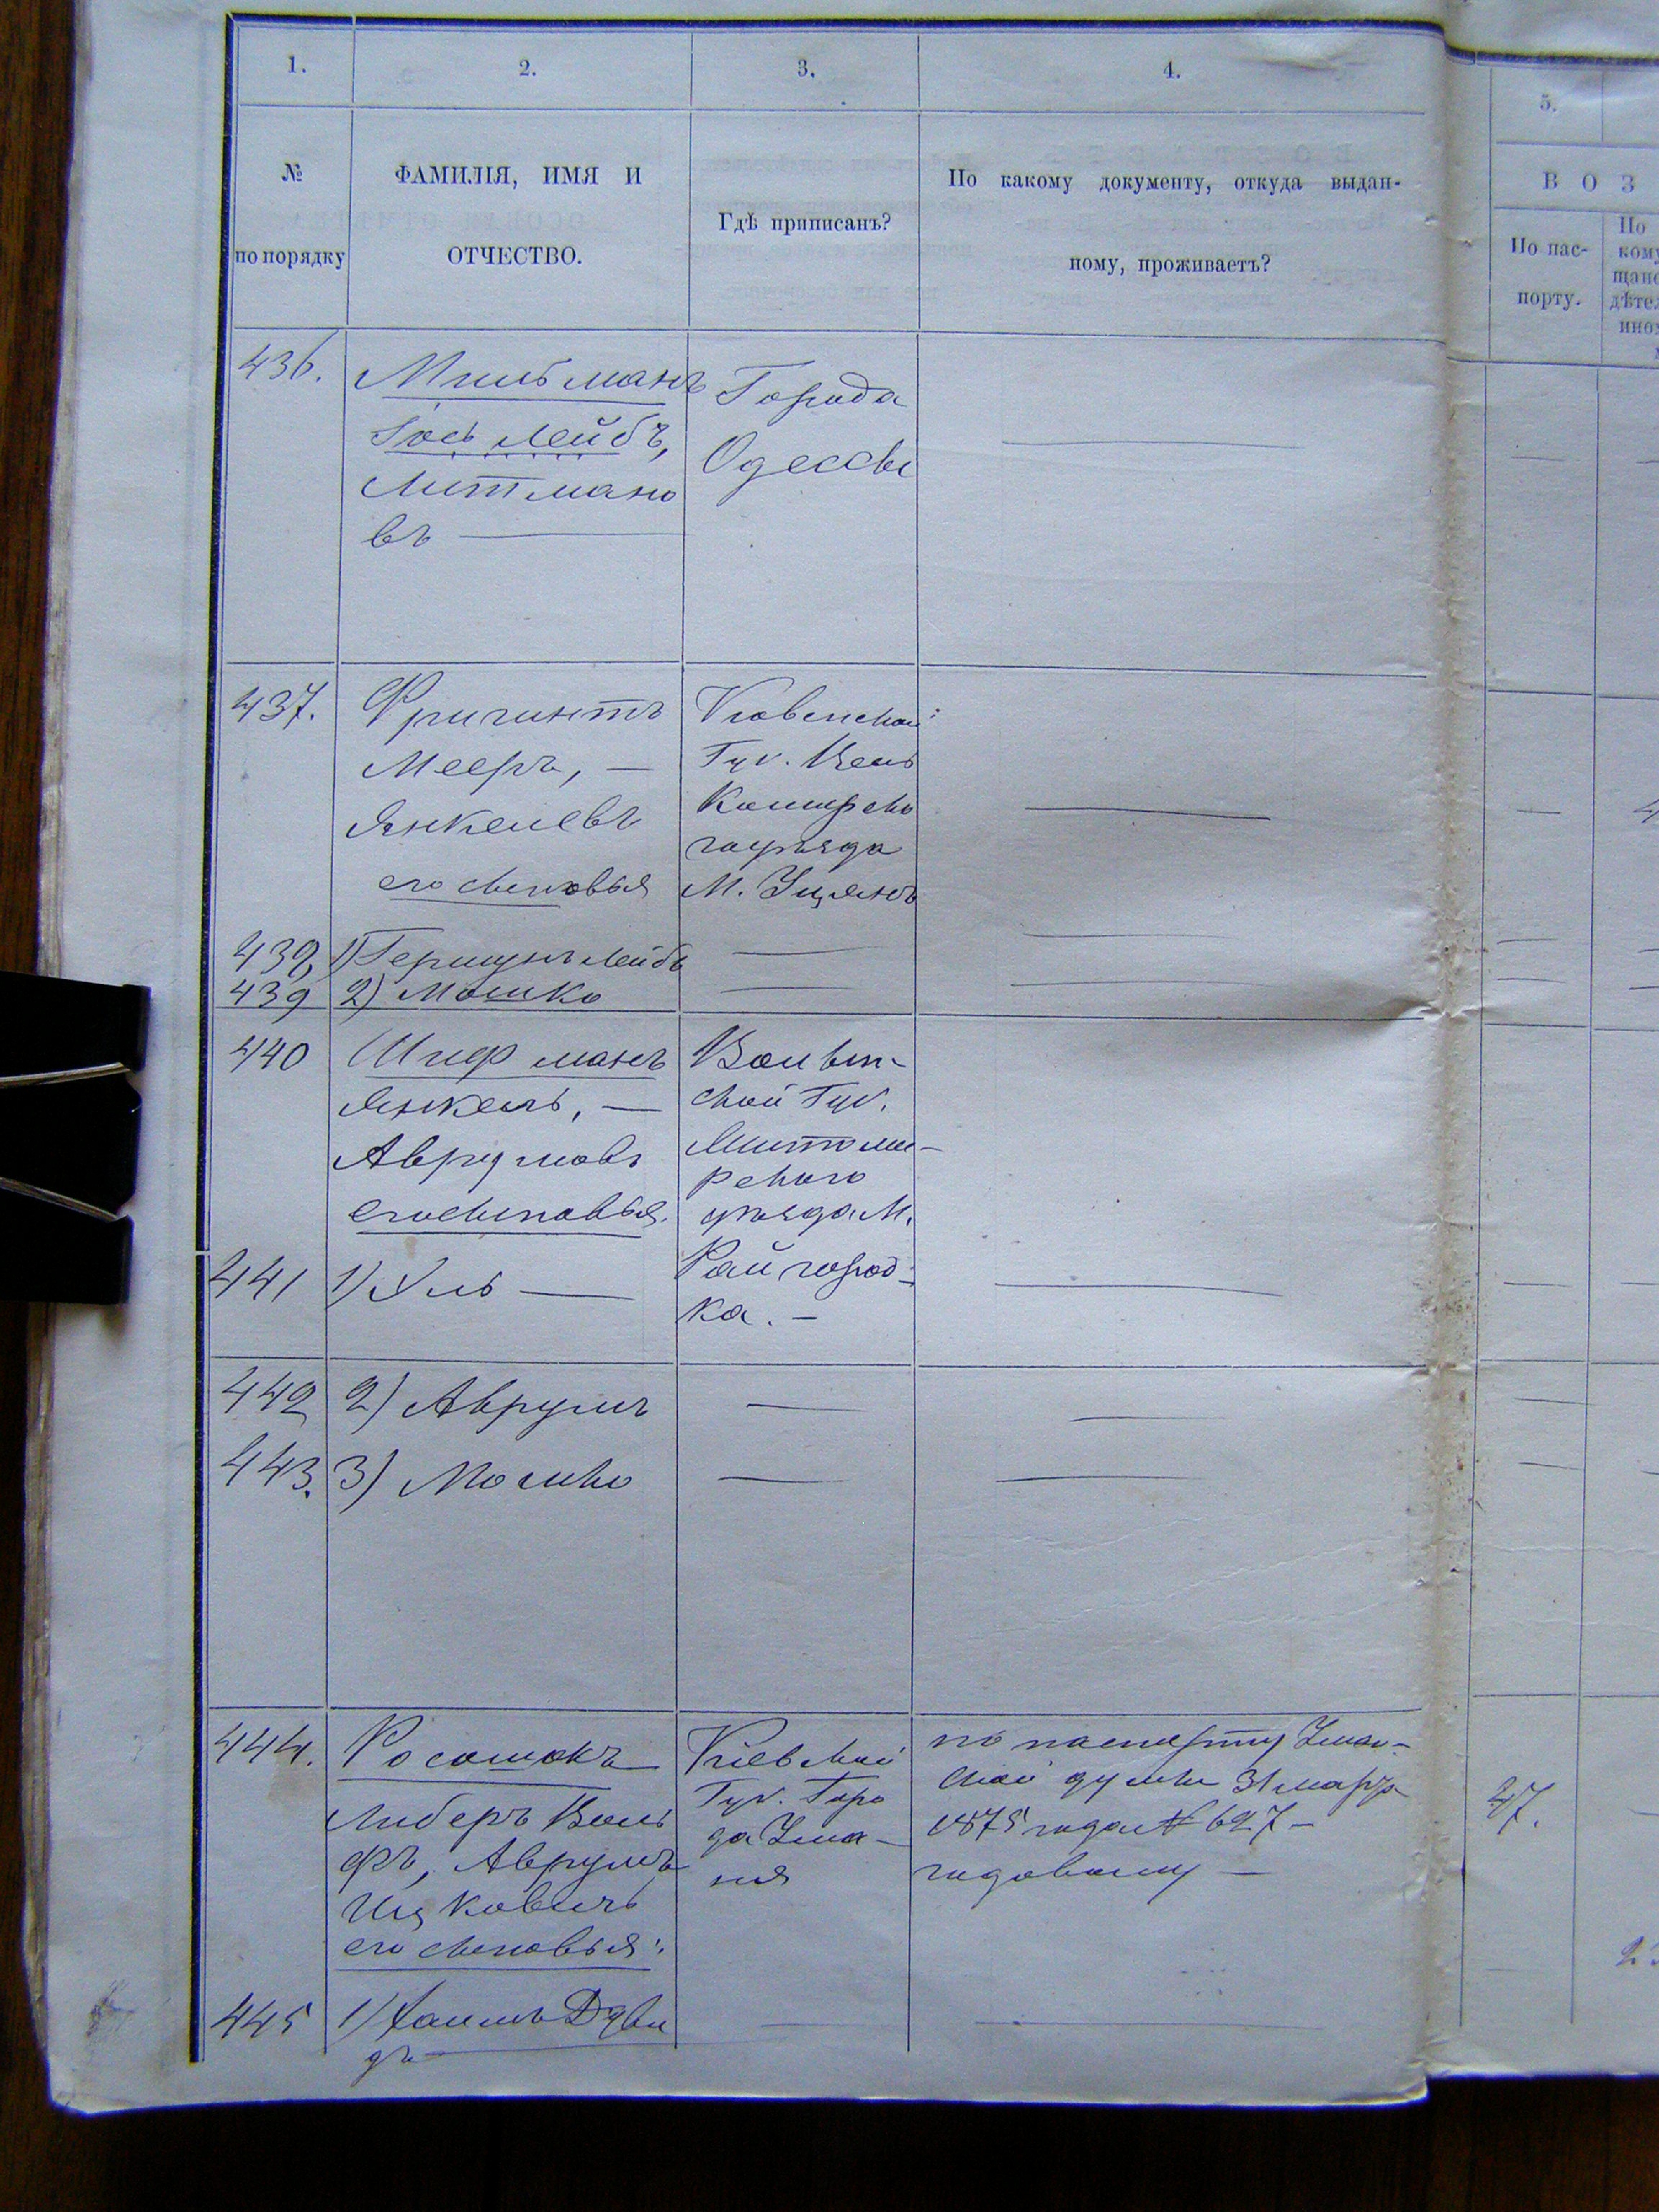 1.
2.
3.
4.
5.
№
по порядку
ФАМИЛІЯ, ИМЯ И
ОТЧЕСТВО.
Гдѣ приписанъ?
По какому документу, откуда выдан-
ному, проживаетъ?
В О З
По пас-
порту.
По
436.
Мильманъ
Іось Лейбъ,
Литмано
въ —
Города
Одессы
—
437.
Мееръ, —
Янкелевъ
его сыновья
Ковенской
Губ.
го уѣзда
М. Уцянъ
—
438
1) Гершунъ Лейбъ
—
—
439
2) Мошко
—
—
440
Шифманъ
Янкель, —
Аврумовъ
его сыновья.
Волын-
ской Губ.
Житоми-
рскаго
уѣзда М.
Райгород-
ка. —
441
1) Уль —
—
442
2) Аврумъ
—
—
443.
3) Мошко
—
—
444.
Росошокъ
Либеръ Воль
фъ, Аврумъ
Ицковичъ
его сыновья:
Кіевской
Губ. Горо
да Ума-
ня
по паспорту Уман-
ской думы 31 марта
1875 года № 627 —
годовому —
47.
445
1) Хаимъ Дави
дъ —
—
—